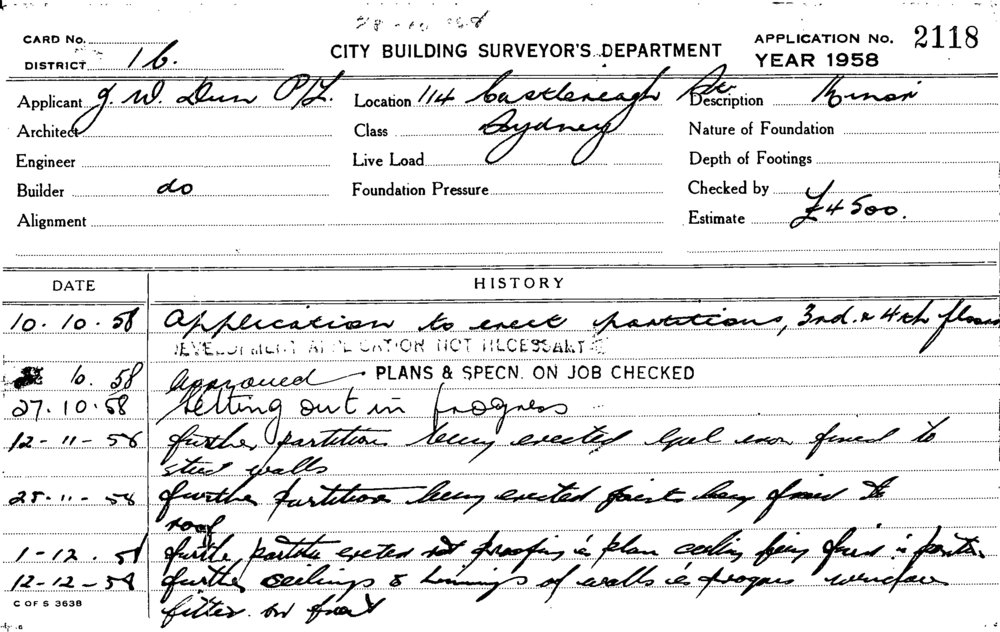 28-10-58
CARD No.
CITY BUILDING SURVEYOR'S DEPARTMENT
APPLICATION No. 2118
DISTRICT 16.
YEAR 1958
Applicant J. W. Dunn P/L. Location 114 Castlereagh St. Description Minor
Architect Class Sydney Nature of Foundation
Engineer Live Load Depth of Footings
Builder do Foundation Pressure Checked by
Alignment Estimate £4500.
DATE HISTORY
10.10.58 Application to erect partitions, 3rd. & 4th floors
DEVELOPMENT APPLICATION NOT NECESSARY
10.58 Approved PLANS & SPECN. ON JOB CHECKED
27.10.58 Setting out in progress
12-11-58 further partitions being erected fixed to
stud walls
25-11-58 further partitions being erected joists being fixed to
roof
1-12.58 further erected proofing in place ceiling being fixed in
12-12-58 further ceilings & linings of walls in progress
C OF S 3638
on front